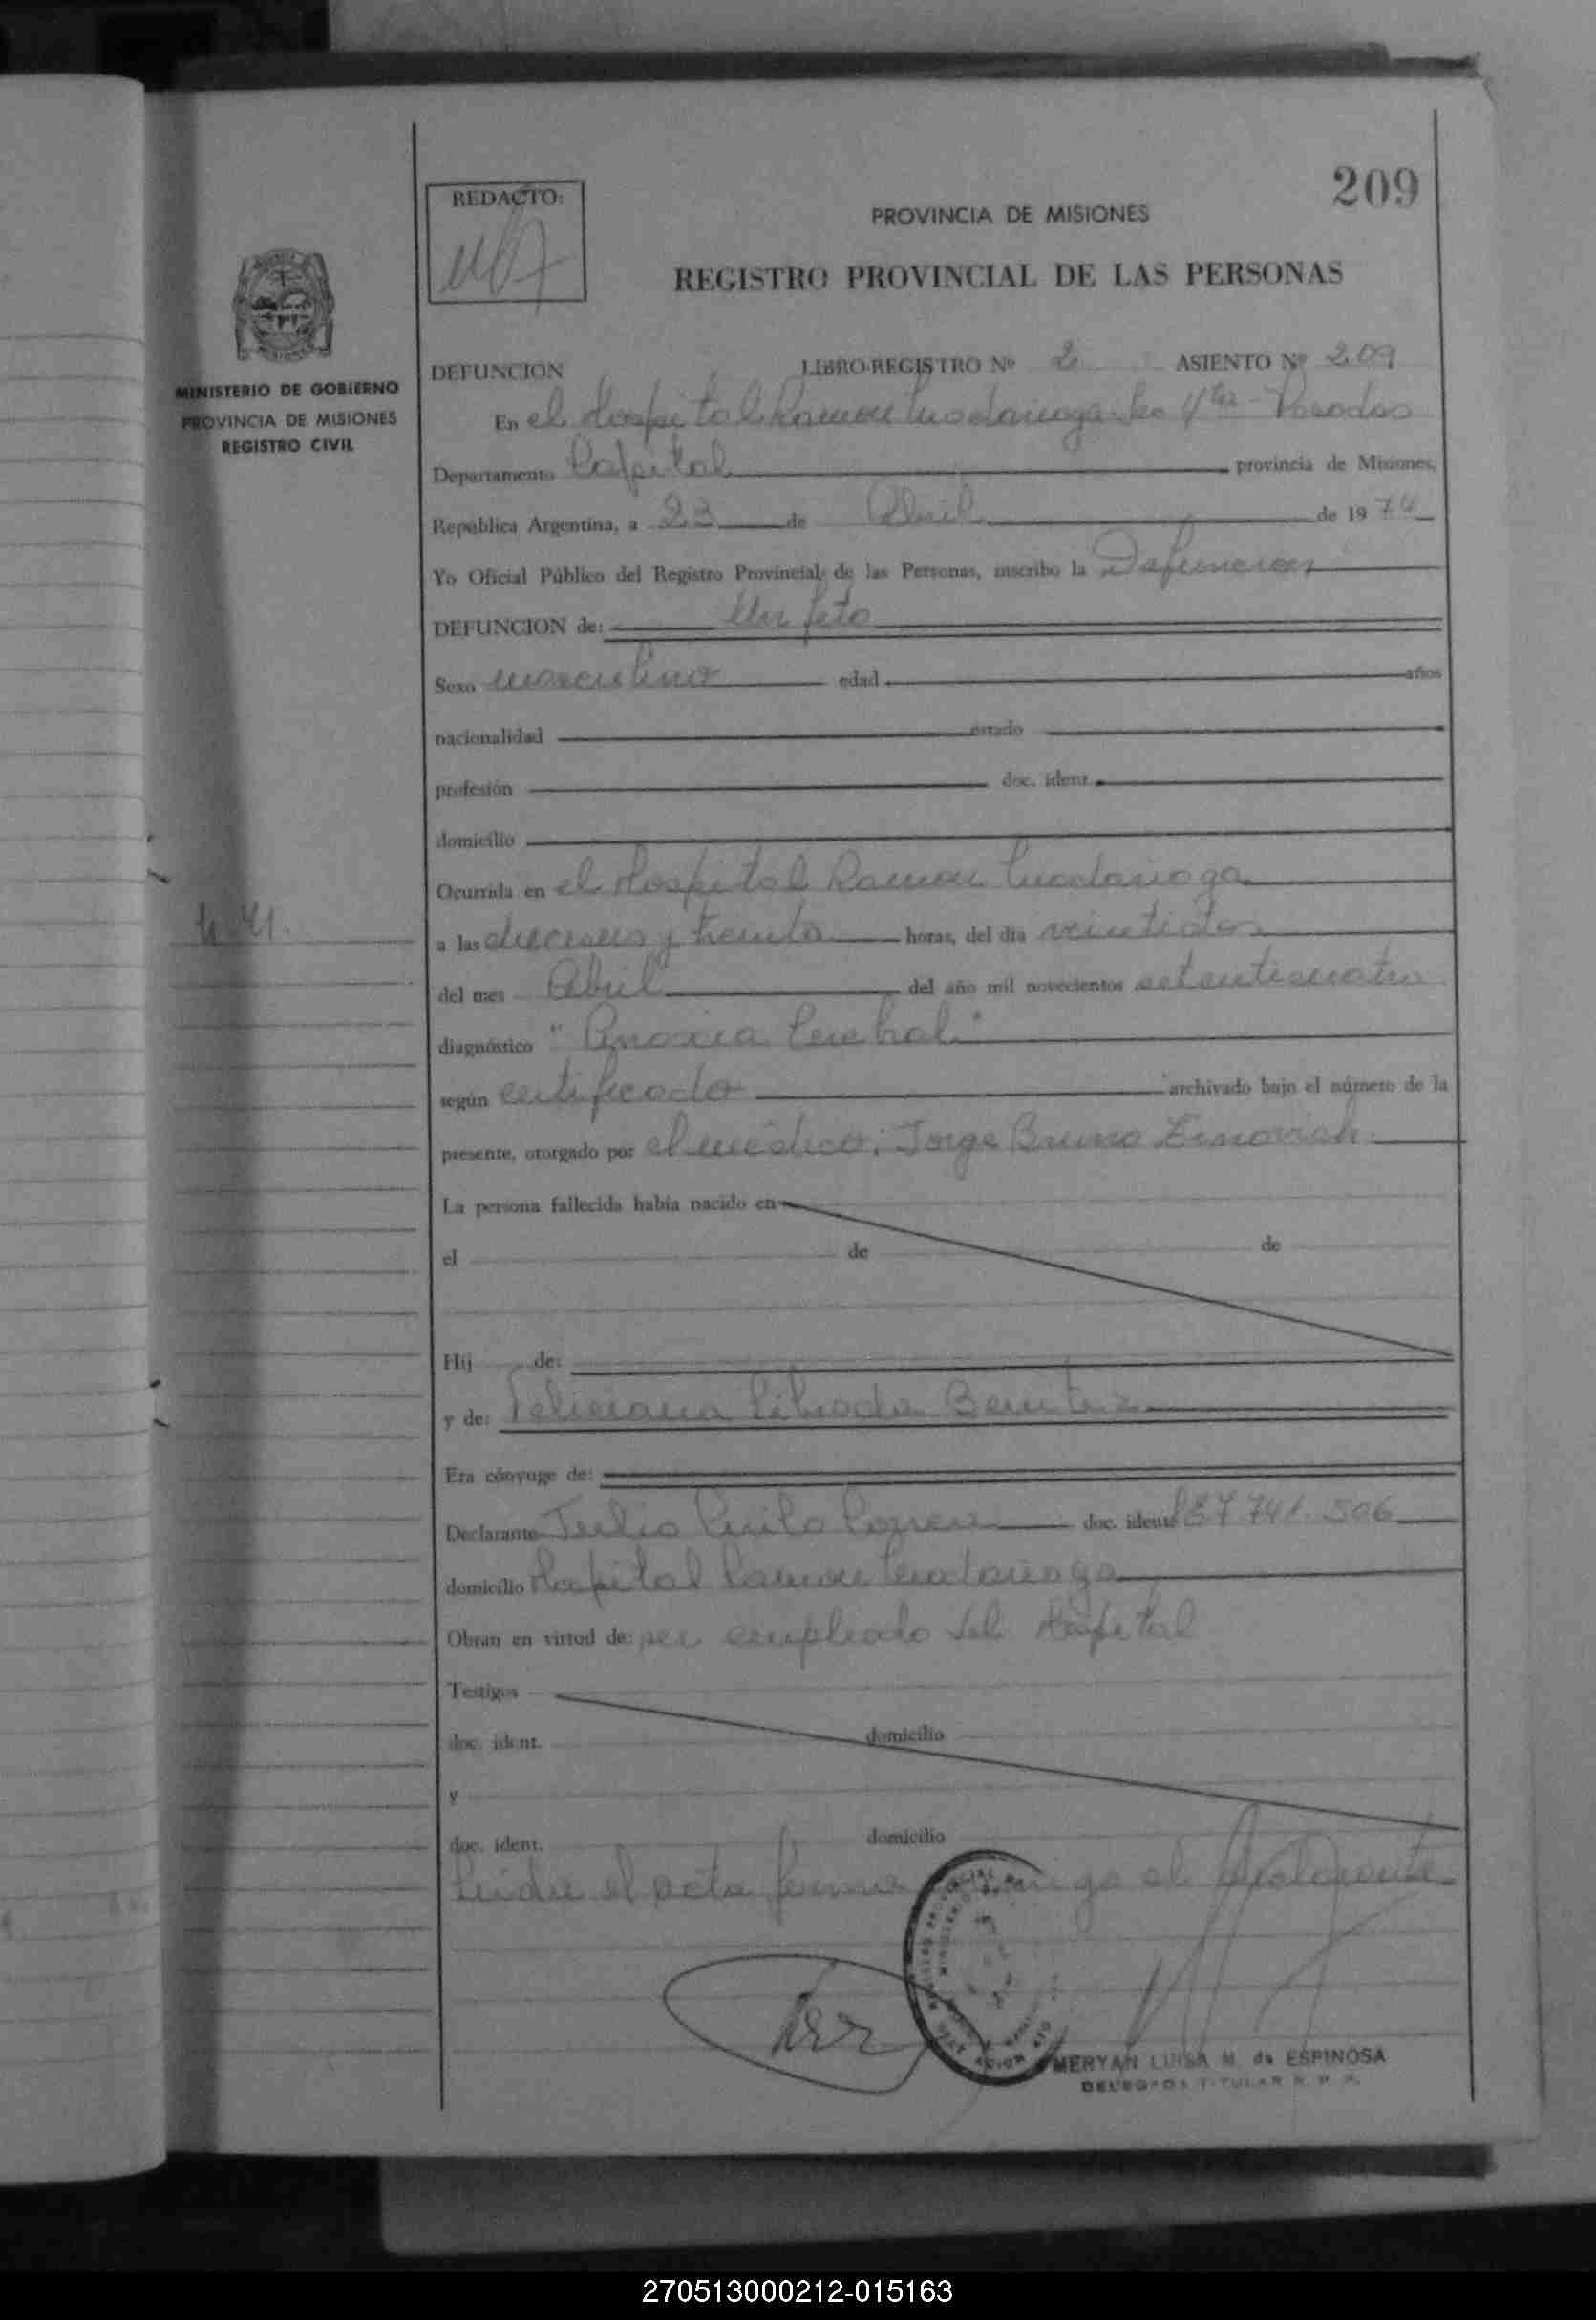 209
REDACTO:
PROVINCIA DE MISIONES
REGISTRO PROVINCIAL DE LAS PERSONAS
MINISTERIO DE GOBIERNO
PROVINCIA DE MISIONES
REGISTRO CIVIL
DEFUNCION LIBRO-REGISTRO Nº 2 ASIENTO Nº 209
En el Hospital Ramon Madariaga 4ta - Posadas
Departamento Capital provincia de Misiones,
República Argentina, a 23 de Abril de 1974
Yo Oficial Público del Registro Provincial de las Personas, inscribo la Defuncion
DEFUNCION de: Un feto
Sexo masculino edad años
nacionalidad estado
profesión doc. ident.
domicilio
Ocurrida en el Hospital Ramon Madariaga
a las dieciseis y treinta horas, del día veintidos
del mes Abril del año mil novecientos setenticuatro
diagnóstico "Anoxia Cerebral"
según certificado archivado bajo el número de la
presente, otorgado por el médico: Jorge Bruno Zinovich
La persona fallecida había nacido en
el de de
Hij de:
y de: Feliciana Librada Benitez
Era cónyuge de:
Declarante Julio doc. ident. 7.741.506
domicilio Hospital Ramon Madariaga
Obran en virtud de: ser empleado del Hospital
Testigos
doc. ident. domicilio
y
doc. ident. domicilio
Leida el acta firma conmigo el declarante
MERYAN LUISA M. de ESPINOSA
DELEGADA TITULAR R. P. P.
270513000212-015163